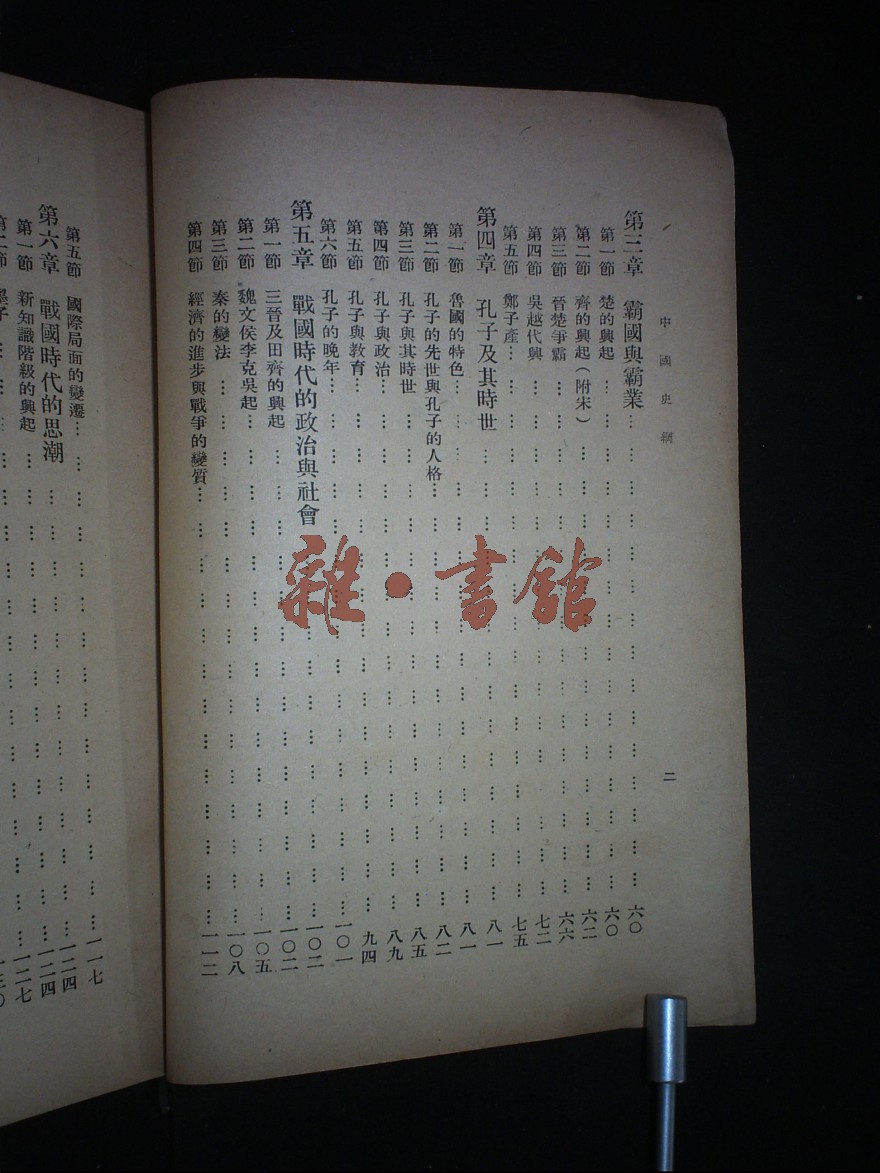 中國史綱
二
第三章 霸國與霸業…………六〇
第一節 楚的興起…………六〇
第二節 齊的興起(附宋)…………六二
第三節 晉楚爭霸…………六六
第四節 吳越代興…………七二
第五節 鄭子產…………七五
第四章 孔子及其時世…………八一
第一節 魯國的特色…………八一
第二節 孔子的先世與孔子的人格…………八二
第三節 孔子與其時世…………八五
第四節 孔子與政治…………八九
第五節 孔子與教育…………九四
第六節 孔子的晚年…………一〇一
第五章 戰國時代的政治與社會…………一〇二
第一節 三晉及田齊的興起…………一〇二
第二節 魏文侯李克吳起…………一〇五
第三節 秦的變法…………一〇八
第四節 經濟的進步與戰爭的變質…………一一二
第五節 國際局面的變遷…………一一七
第六章 戰國時代的思潮…………一二四
第一節 新知識階級的興起…………一二四
第二節 墨子…………一二七
雜·書館